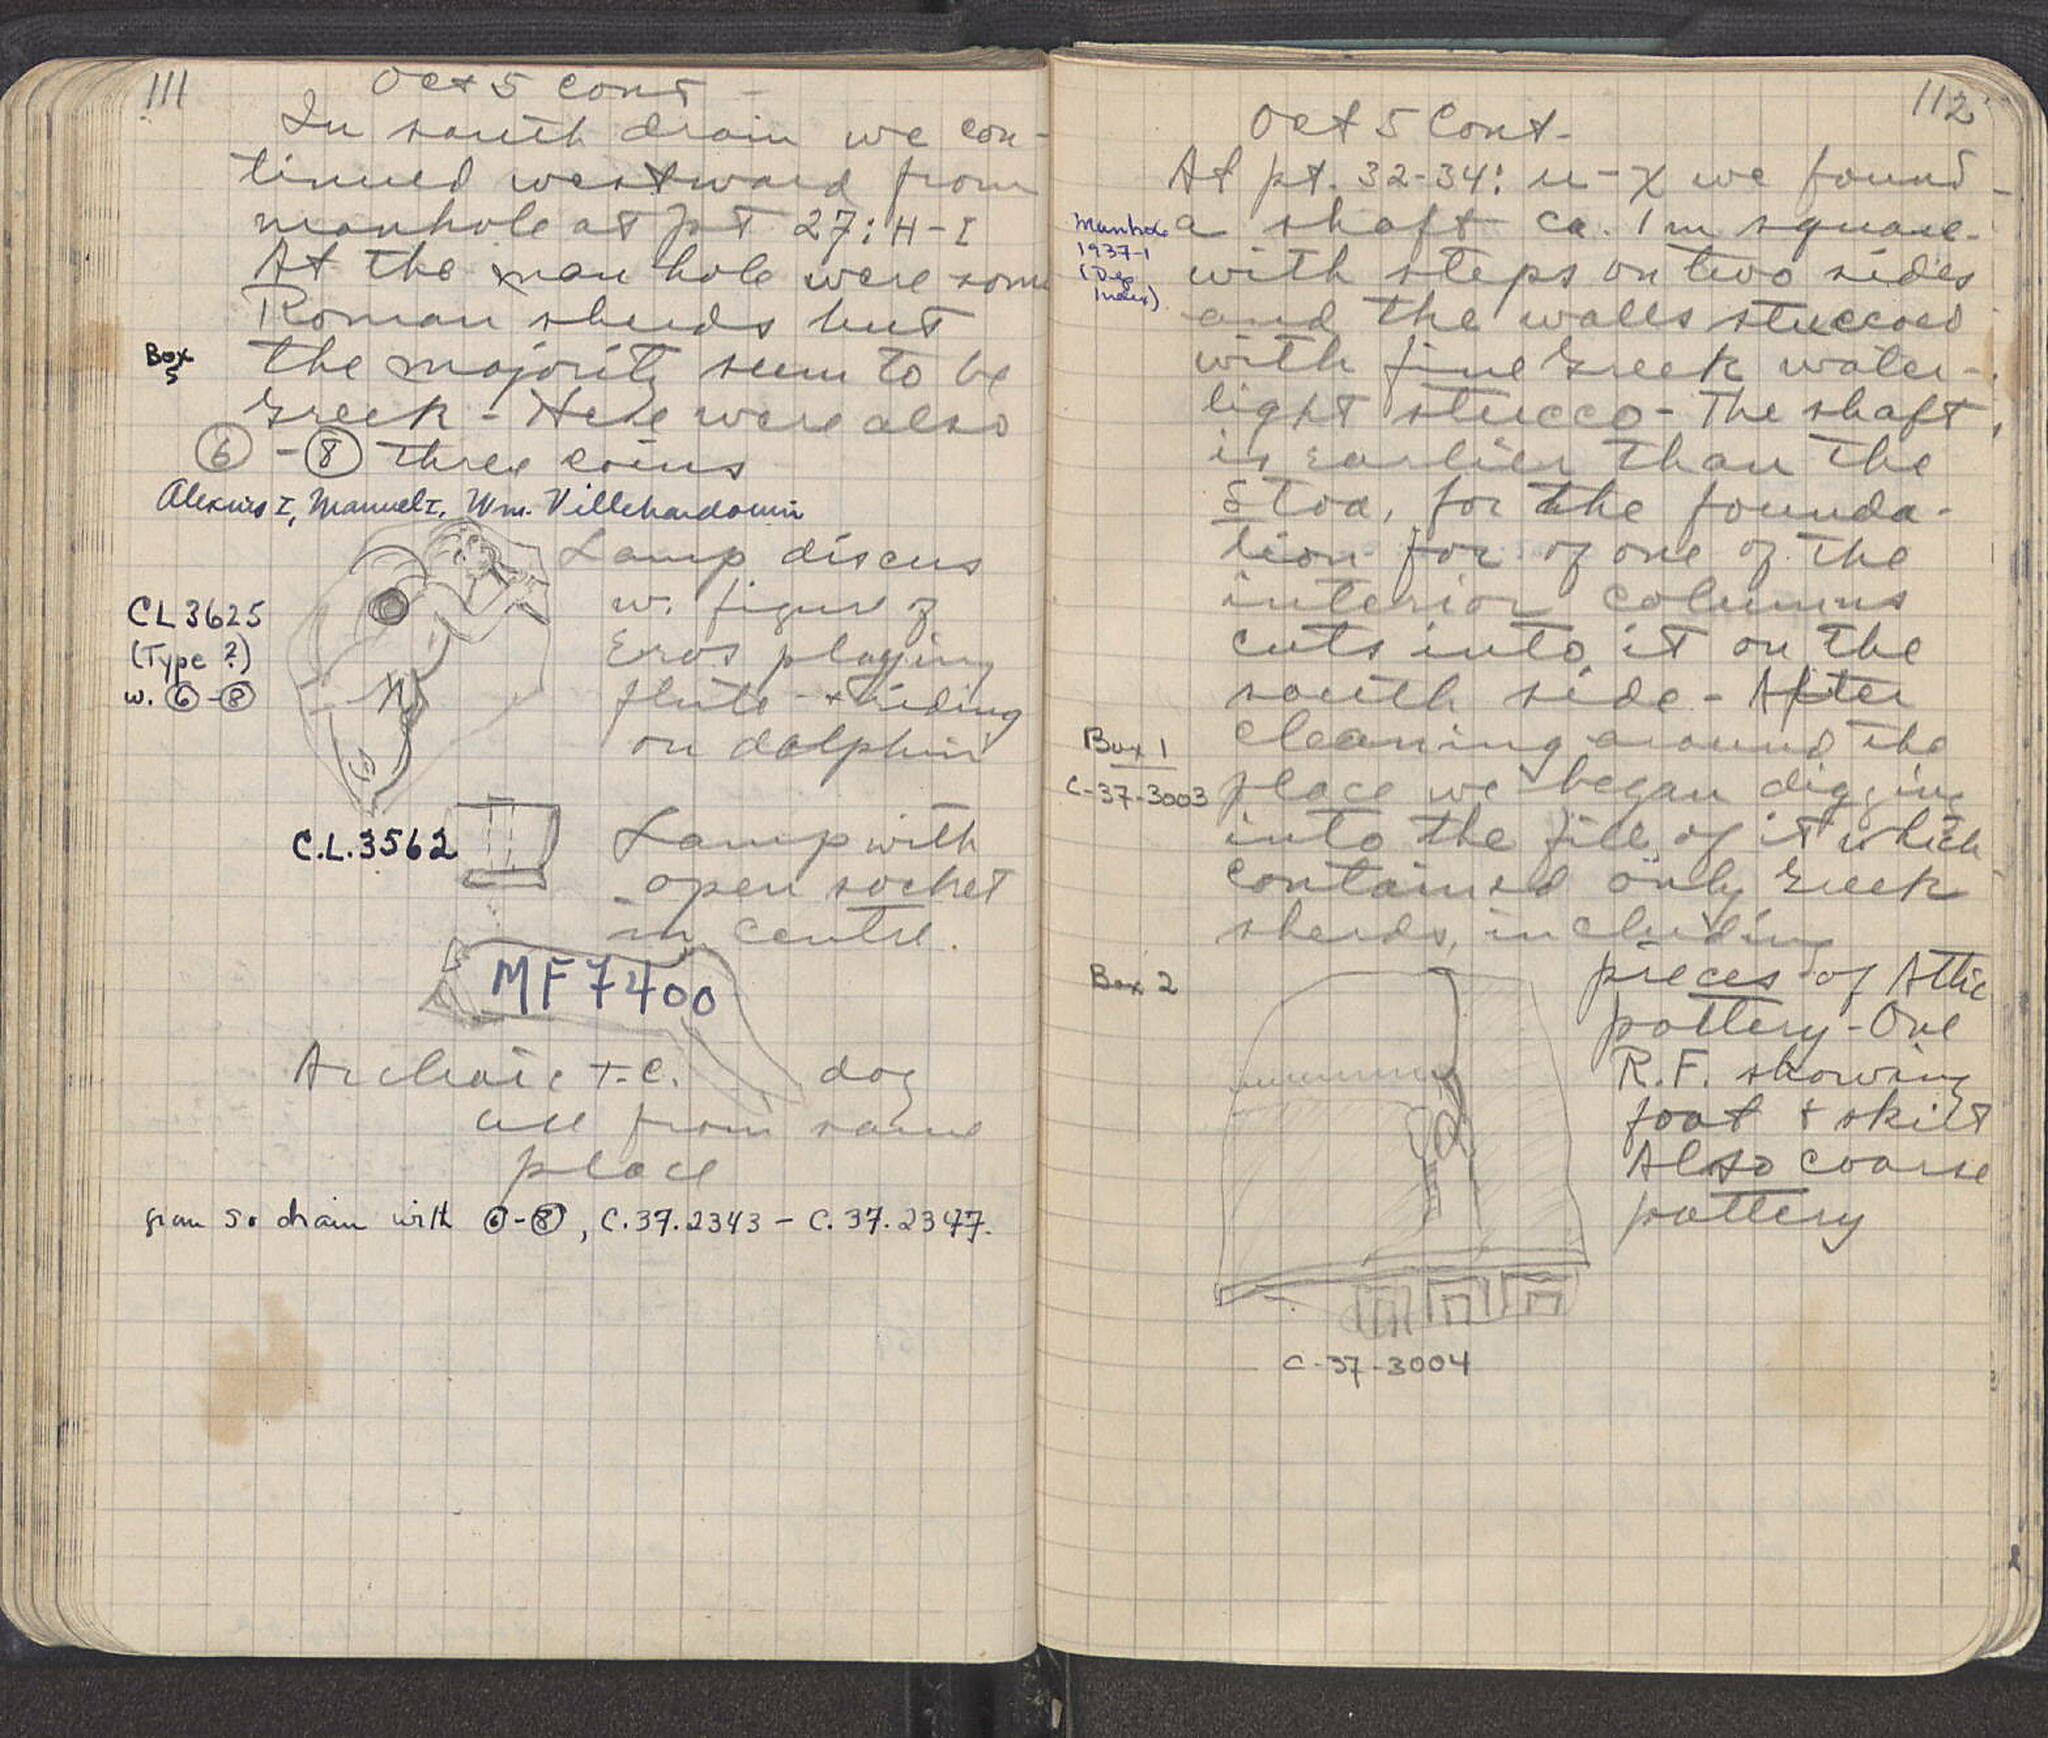 111
Oct 5 Cont -
In south drain we con-
tinued westward from
manhole at pt 27:H-I
At the man hole were some
Roman sherds but
Box 5
the majority seem to be
Greek - Here were also
⑥ - ⑧ three coins
Alexius I, Manuel I, Wm. Villehardouin
Lamp discus
w. figure of
Eros playing
flute + riding
on dolphin
CL 3625
(Type ?)
w. ⑥-⑧
C.L.3562
Lamp with
open socket
in centre.
MF 7400
Archaic T.C. dog
all from same
place
from So drain with ⑥-⑧, C.37.2343 - C.37.2347.
112
Oct 5 Cont-
At pt. 32-34: u-χ we found
Manhole
1937-1
(Dep
Index)
a shaft ca. 1m square
with steps on two sides
and the walls stuccoed
with fine Greek water-
tight stucco - The shaft
is earlier than the
Stoa, for the founda-
tion for of one of the
interior columns
cuts into it on the
south side - After
cleaning around the
Box 1
C-37-3003
place we began digging
into the fill of it which
contained only Greek
sherds, including
Box 2
pieces of Attic
pottery - One
R.F. showing
foot & skirt
Also coarse
pottery
C-37-3004